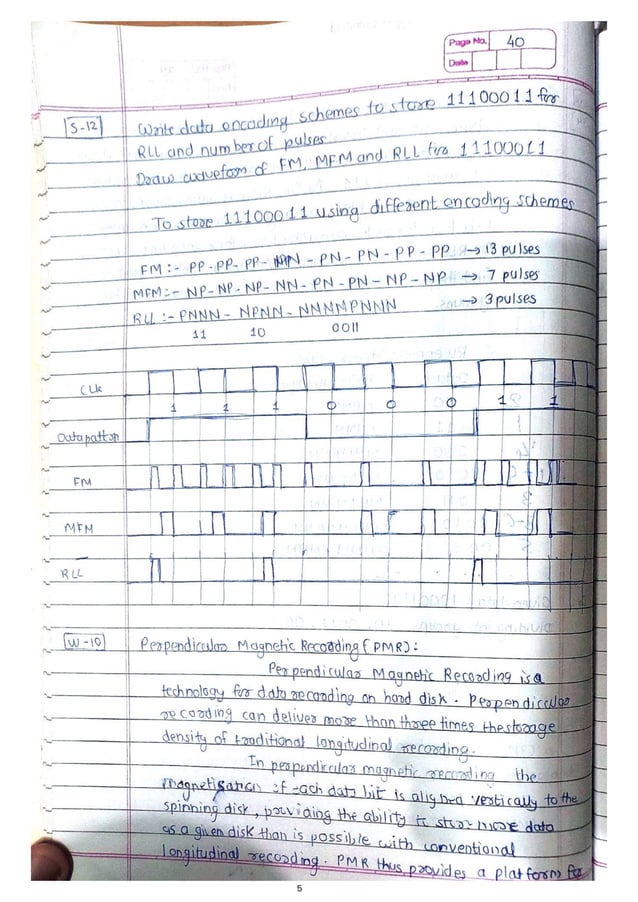 Page No. 40
Date
S-12
Write data encoding schemes to store 11100011 for
RLL and number of pulses
Draw waveform of FM, MFM and RLL for 11100011
To store 11100011 using different encoding schemes
FM :- PP - PP - PP - PN - PN - PN - PP - PP → 13 pulses
MFM :- NP - NP - NP - NN - PN - PN - NP - NP → 7 pulses
RLL :- PNNN - NPNN - NNNNPNNN → 3 pulses
11 10 0011
CLK
1 1 1 0 0 0 1 1
Data pattern
FM
MFM
RLL
W-10
Perpendicular Magnetic Recording (PMR) :
Perpendicular Magnetic Recording is a
technology for data recording on hard disk. Perpendicular
recording can deliver more than three times the storage
density of traditional longitudinal recording.
In perpendicular magnetic recording the
magnetisation of each data bit is aligned vertically to the
spinning disk, providing the ability to store more data
as a given disk than is possible with conventional
longitudinal recording. PMR thus provides a platform for
5